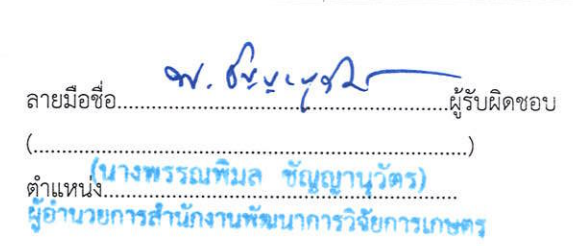 ลายมือชื่อ..........................................................ผู้รับผิดชอบ
(..........................................................................)
(นางพรรณพิมล ชัญญานุวัตร)
ตำแหน่ง..............................................................
ผู้อำนวยการสำนักงานพัฒนาการวิจัยการเกษตร